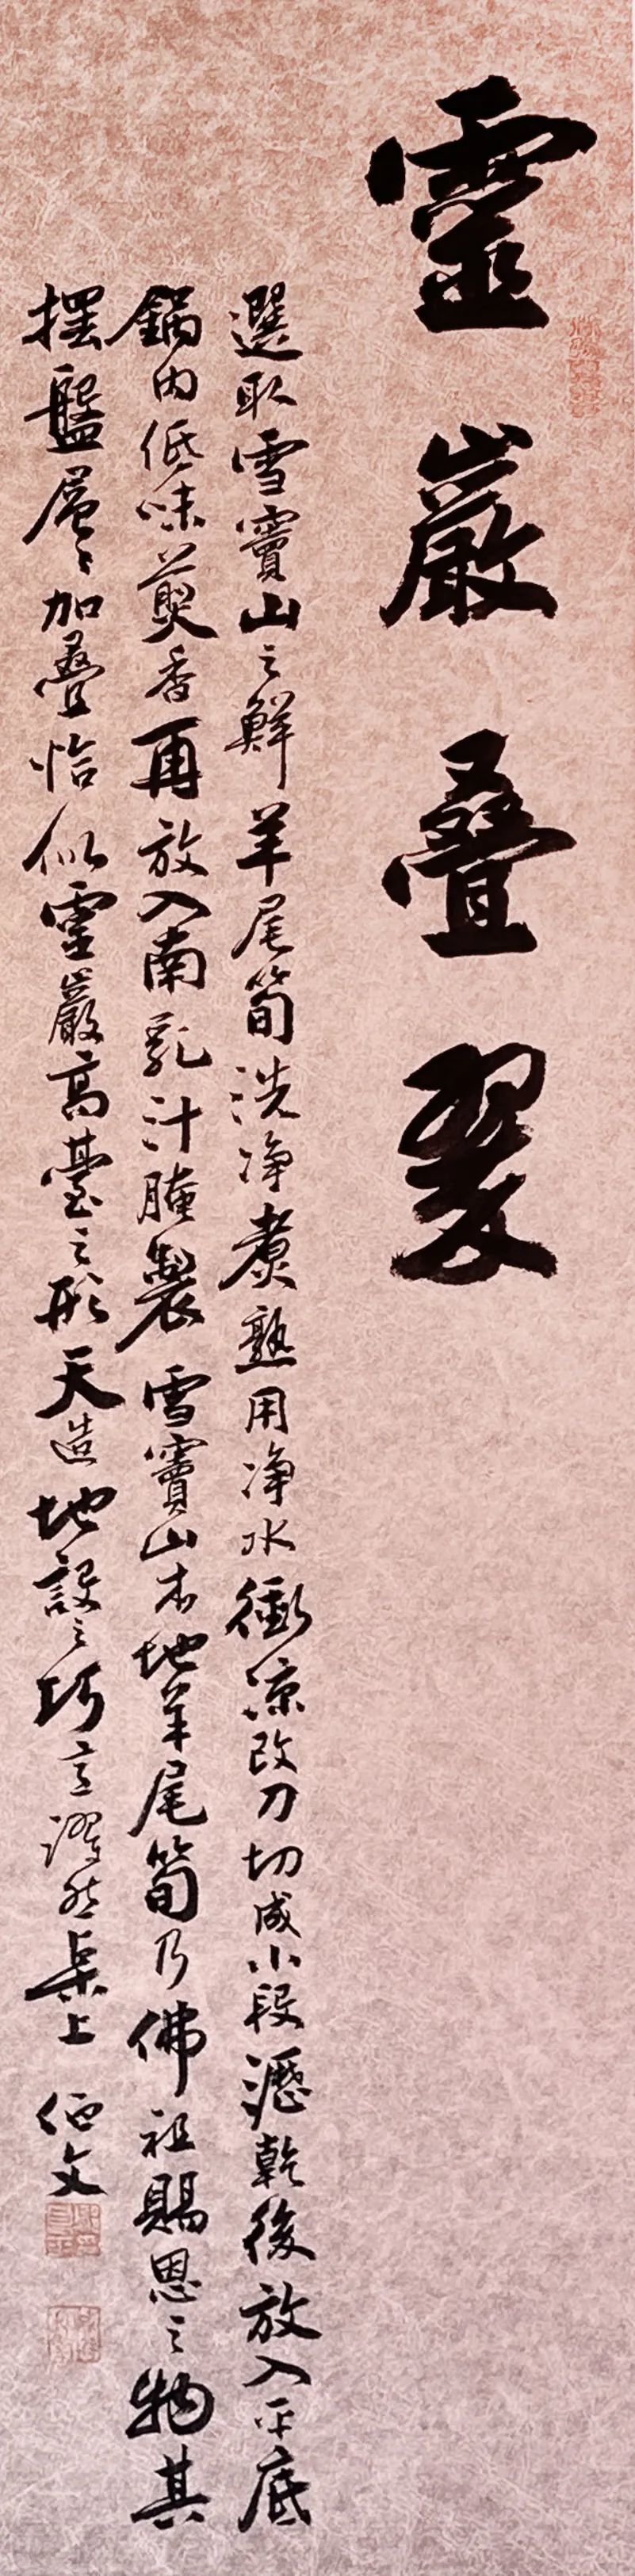 靈巖叠翠
選取雪竇山之鮮羊尾筍洗净煮熟用净水衝涼改刀切成小段瀝乾後放入平底
鍋内低味煎香再放入南乳汁腌製雪竇山本地羊尾筍乃佛祖賜恩之物其
擺盤層々加疊恰似靈巖高臺之形天造地設之巧意躍然桌上
文